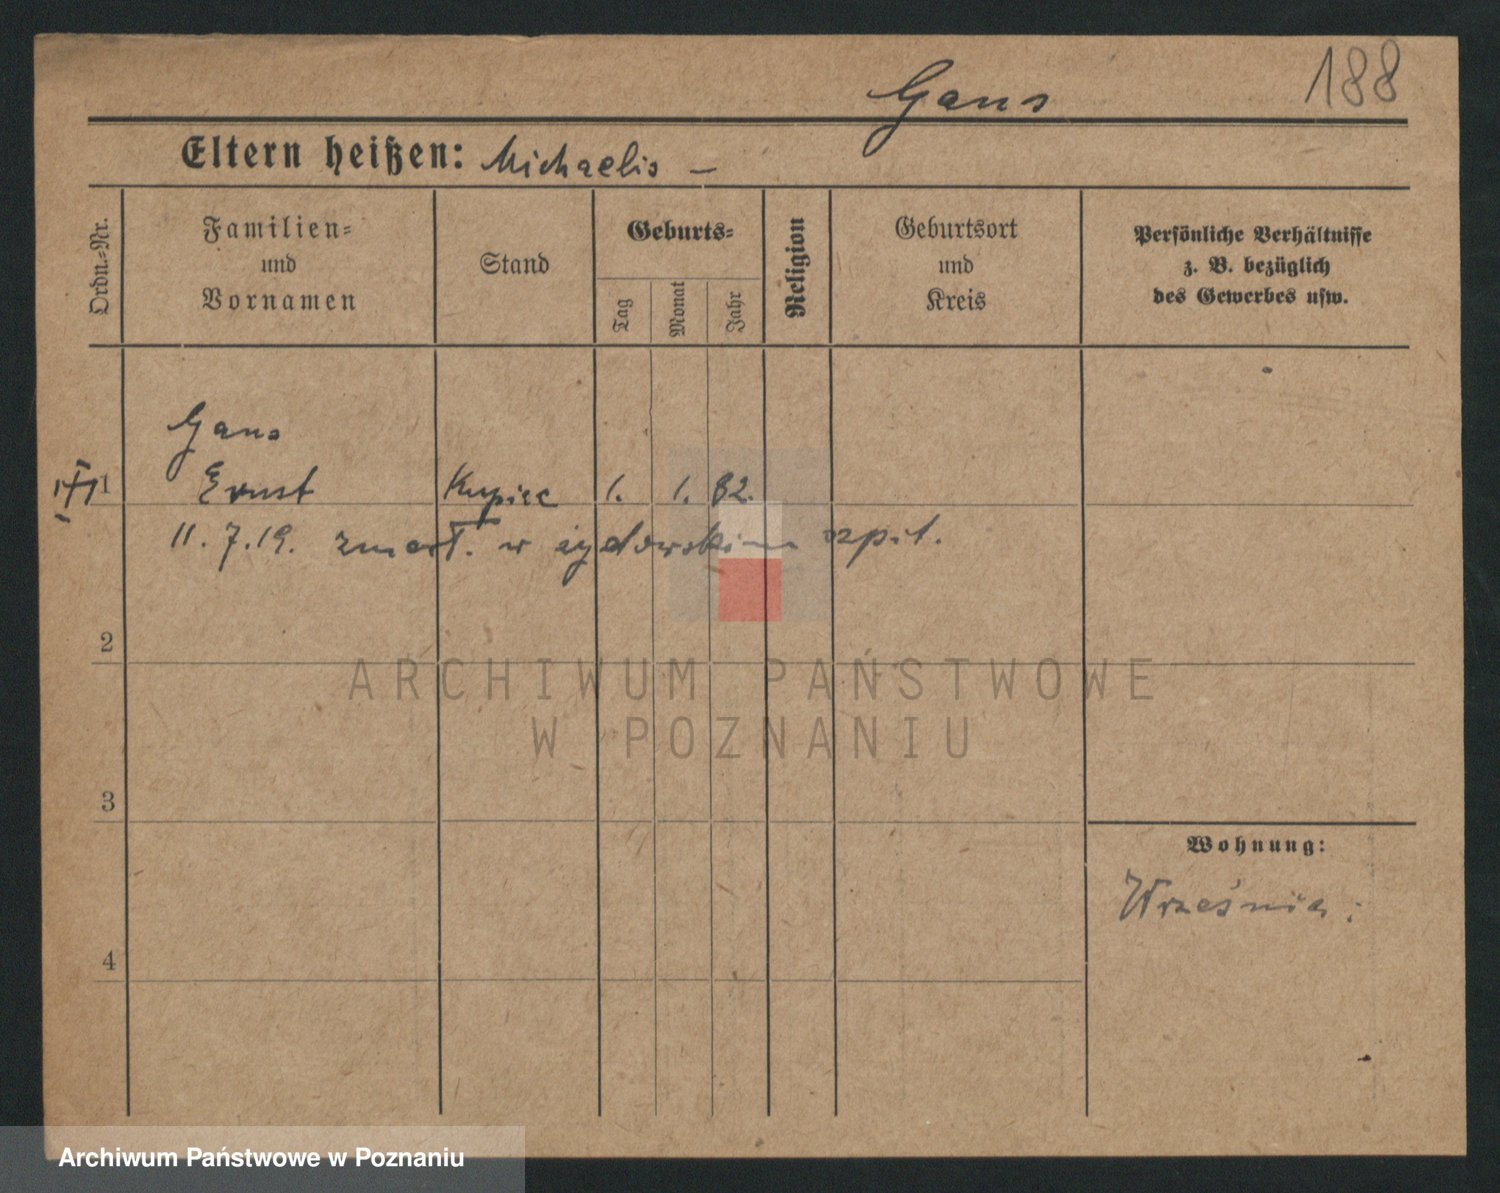 188
Gans
Eltern heißen: Michaelis –
Ordn.-Nr.
Familien-
und
Vornamen
Stand
Geburts-
Tag
Monat
Jahr
Religion
Geburtsort
und
Kreis
Persönliche Verhältnisse
z. B. bezüglich
des Gewerbes usw.
Gans
1 Ernst Kupiec 1. 1. 82.
11.7.19. zmarł. w żydowskim szpit.
2
ARCHIWUM PAŃSTWOWE
W POZNANIU
3
Wohnung:
Września:
4
Archiwum Państwowe w Poznaniu